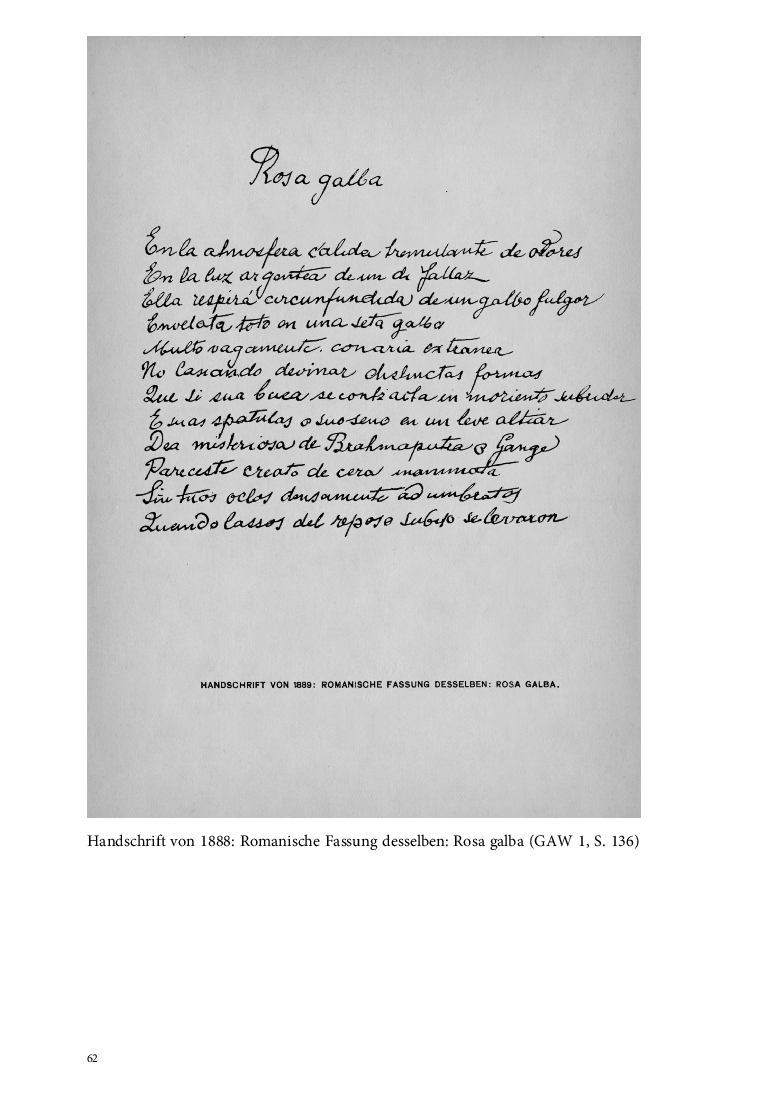 Rosa galba
En la atmosfera calida tremulante de odores
En la luz argentea de un di fallaz
Ella respirá circunfundida de un galbo fulgor
Envelata toto en una seta galba
Multo vagamente conaria extranea
No lascando devinar distinctas formas
Que si sua buca se contracta in moriente subridor
E suas spatulas o suo seno en un leve altiar
Dea misteriosa de Brahmaputra o Gange
Pareceste creato de cera inanimata
Sin tuos oclos densamente adumbratos
Quando lassos del reposo subito se levaron
HANDSCHRIFT VON 1889: ROMANISCHE FASSUNG DESSELBEN: ROSA GALBA.
Handschrift von 1888: Romanische Fassung desselben: Rosa galba (GAW 1, S. 136)
62